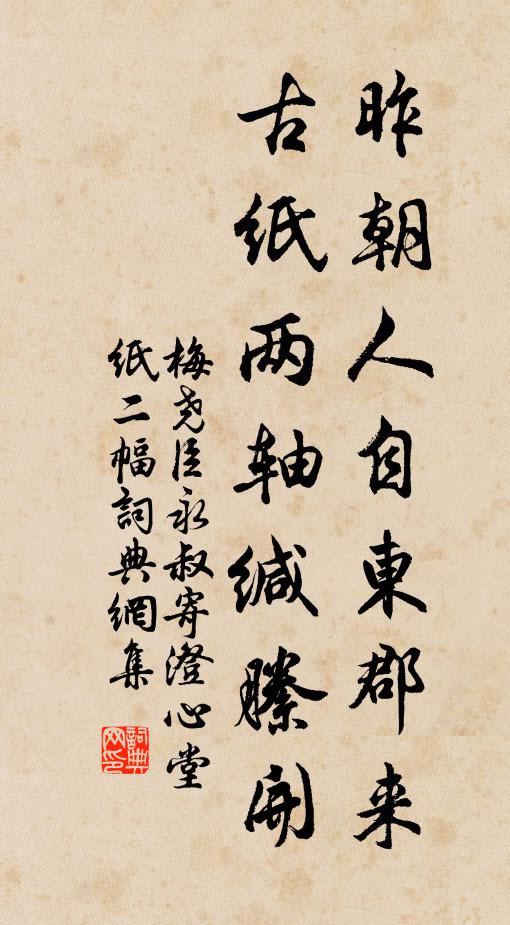 昨朝人自東郡来
古纸两轴缄縢開
梅尧臣永叔寄澄心堂
纸二幅詞典網集
詞典网印